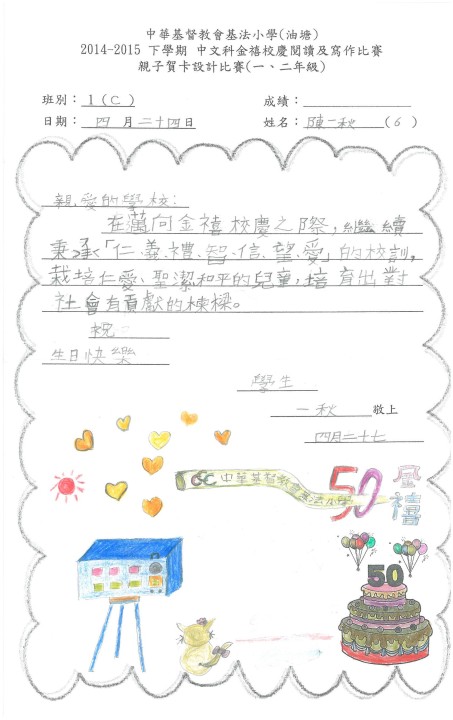 中華基督教會基法小學(油塘)
2014-2015 下學期 中文科金禧校慶閱讀及寫作比賽
親子賀卡設計比賽(一、二年級)
班別: 1(C) 成績:
日期: 四月二十四日 姓名: 陳一秋 (6)
親愛的學校:
在邁向金禧校慶之際,繼續
秉承「仁、義、禮、智、信、望、愛」的校訓,
栽培仁愛、聖潔和平的兒童,培育出對
社會有貢獻的棟樑。
祝:
生日快樂
學生
一秋 敬上
四月二十七
CC 中華基督教會基法小學 50 金禧
50